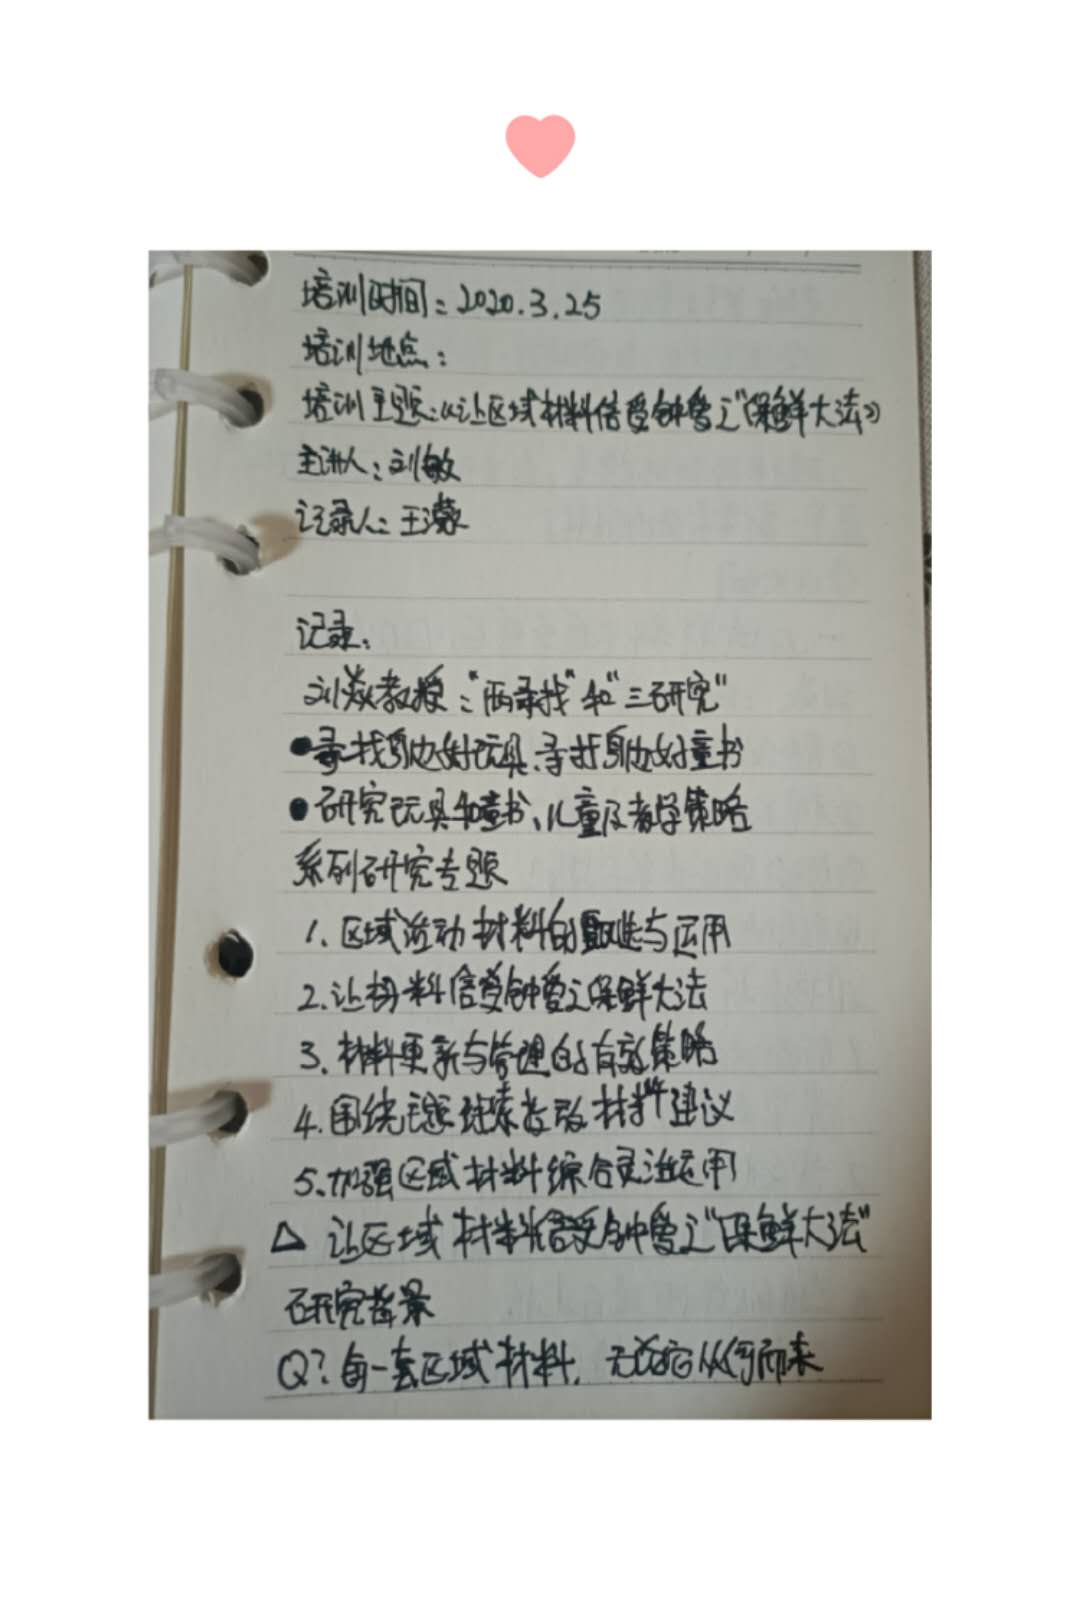 培训时间：2020.3.25
培训地点：
培训主题：《让区域材料倍受钟爱之"保鲜大法》
主讲人：刘敏
记录人：王濛
记录：
刘焱教授："两寻找"和"三研究"
●寻找身边好玩具、寻找身边好童书
●研究玩具和童书、儿童及教学策略
系列研究专题
1.区域活动材料的甄选与运用
2.让材料倍受钟爱之保鲜大法
3.材料更新与管理的有效策略
4.围绕主题探索投放材料建议
5.加强区域材料综合灵活运用
△ 让区域材料倍受钟爱之"保鲜大法"
研究背景
Q?.每一套区域材料，无论它从何而来